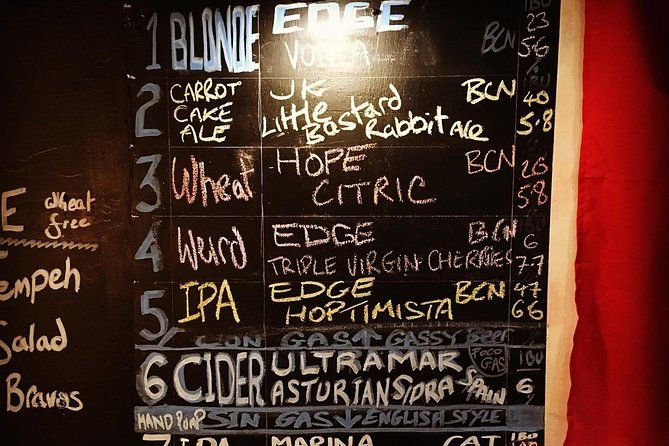 1 BLONDE EDGE IBU 23
BCN 5.6
2 CARROT CAKE ALE JK BCN 40
Little Bastard Rabbit Ale 5.8
3 Wheat HOPE BCN
CITRIC 5.8
4 Weird EDGE BCN 6
TRIPLE VIRGIN CHERRIES 7.7
5 IPA EDGE BCN 47
HOPTIMISTA 6.6
CON GAS ↑ GASSY BEER
6 CIDER ULTRAMAR POCO GAS IBU
ASTURIAN SIDRA SPAIN 6
HAND PUMP SIN GAS ↓ ENGLISH STYLE
7 IPA MARINA CAT
E wheat free
empeh
Salad
Bravas